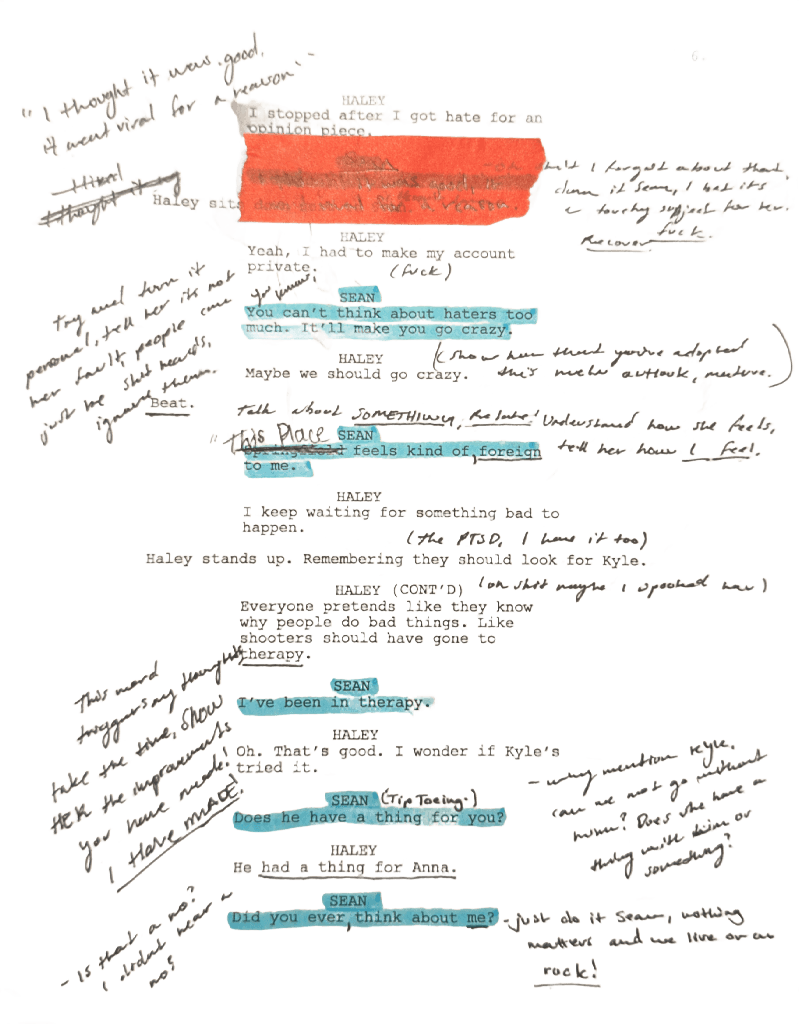 6.
"I thought it was good,
it went viral for a reason"
HALEY
I stopped after I got hate for an
opinion piece.
I thought it
Haley sits
shit I forgot about that,
damn it Sean, I bet it's
a touchy subject for her.
Recover fuck.
HALEY
Yeah, I had to make my account
private. (fuck)
Try and turn it
personal, tell her it's not
her fault, people can
just be shit heads,
ignore them.
you know,
SEAN
You can't think about haters too
much. It'll make you go crazy.
HALEY
Maybe we should go crazy.
(Show her that you've adopted
this outlook, mature.)
Beat.
Talk about SOMETHING, Relate! Understand how she feels,
tell her how I feel.
"This Place SEAN
Springfield feels kind of, foreign
to me.
HALEY
I keep waiting for something bad to
happen.
(the PTSD, I have it too)
Haley stands up. Remembering they should look for Kyle.
HALEY (CONT'D) (oh shit maybe I spooked her)
Everyone pretends like they know
why people do bad things. Like
shooters should have gone to
therapy.
This word
triggers my thoughts
take the time, SHOW
HER the improvements
you have made!
I HAVE MADE!
SEAN
I've been in therapy.
HALEY
Oh. That's good. I wonder if Kyle's
tried it.
SEAN (Tip Toeing.)
Does he have a thing for you?
- why mention Kyle,
can we not go without
him? Does she have a
thing with him or
something?
HALEY
He had a thing for Anna.
- Is that a no?
I didn't hear a
no?
SEAN
Did you ever, think about me?
- just do it Sean, nothing
matters and we live on a
rock!